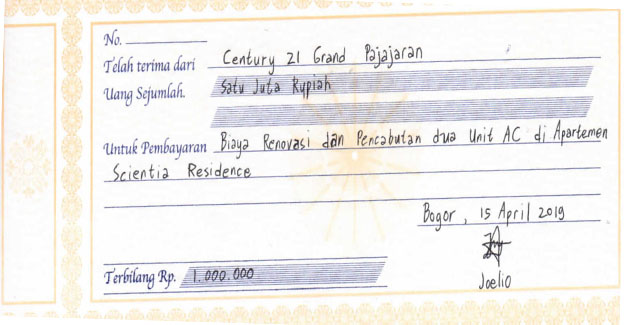 No.
Telah terima dari Century 21 Grand Pajajaran
Uang Sejumlah. Satu Juta Rupiah
Untuk Pembayaran Biaya Renovasi dan Pencabutan dua Unit AC di Apartemen
Scientia Residence
Bogor, 15 April 2019
Terbilang Rp. 1.000.000
Joelio